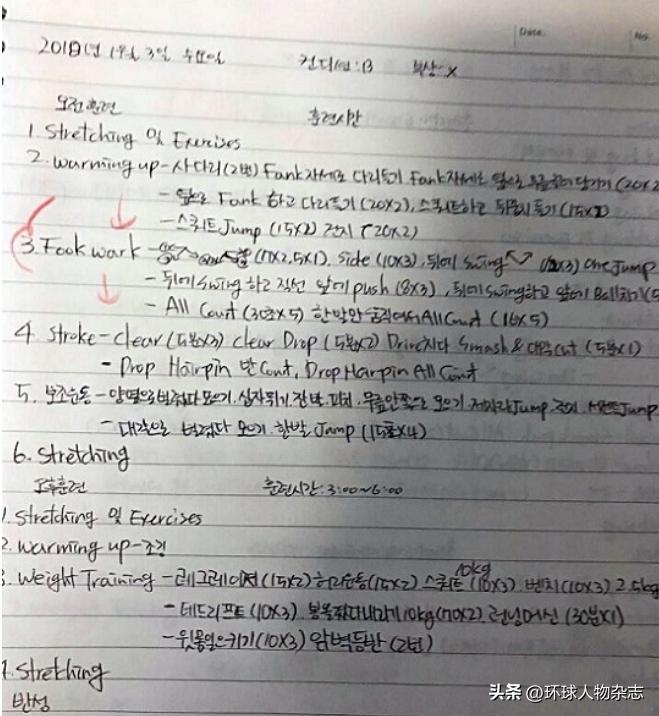 Date. No.
2018년 1월 3일 수요일 컨디션:B 부상:X
오전훈련 훈련시간
1. Stretching 및 Exercises
2. Warming up - 사다리(2번) Fank자세로 다리들기 Fank자세로 앞으로 당기기 (20x2
- 옆으로 Fank 하고 다리들기 (20x2), 스쿼트하고 뒤꿈치들기 (15x2)
- 스쿼트 Jump (15x2) 전지 (20x2)
3. Fook wark - (11x2, 5x1). Side (10x3), 뒤에 Swing (12x3) one Jump
- 뒤에 Swing 하고 직선 앞에 push (8x3), 뒤에 Swing하고 앞에 (5
- All Cout (30초x5) 한박만 움직여서 All Cout (16x5)
4. Stroke - clear (5분x3) clear Drop (5분x2) Drive치다 Smash & 대각cut (5분x1)
- Drop Hairpin 반Cout, Drop Hairpin All Cout
5. 보조운동 - 양옆으로 벌렸다 모으기. 십자뛰기. 무릎안쪽으로 모으기 제자리Jump Jump
- 대각으로 벌렸다 모으기. 한발 Jump (15초x4)
6. Stretching
오후훈련 훈련시간:3:00~6:00
1. Stretching 및 Exercises
2. Warming up - 조깅
3. Weight Training - 레그레이져 (15x2) 허리운동(15x2) 스쿼트 10kg (10x3). 벤치(10x3) 2.5kg
- 데드리프트 (10x3). 봉올렸다내리기 10kg (70x2). 런닝머신 (30분x1)
- 윗몸일으키기 (10x3) 암벽등반 (2번)
4. Stretching
반성
头条 @环球人物杂志